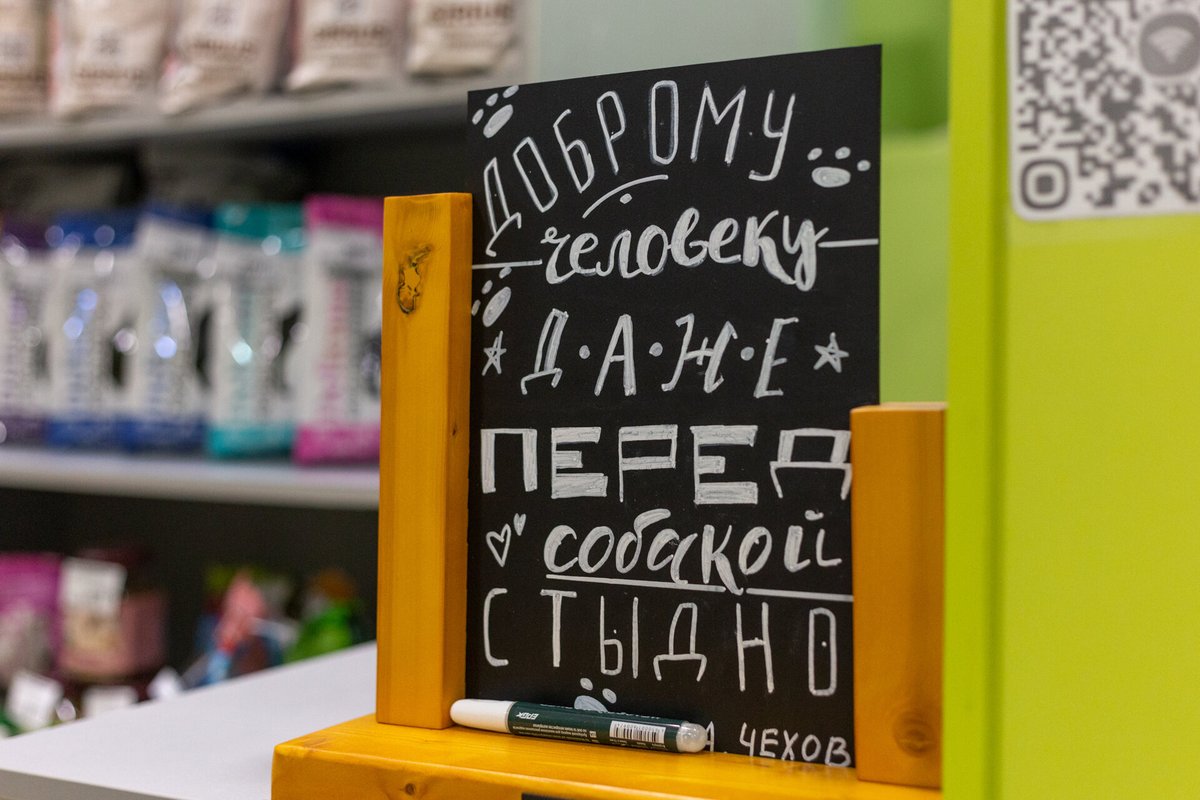 ДОБРОМУ
человеку
Д·А·Ж·Е
ПЕРЕД
собакой
СТЫДНО
А ЧЕХОВ